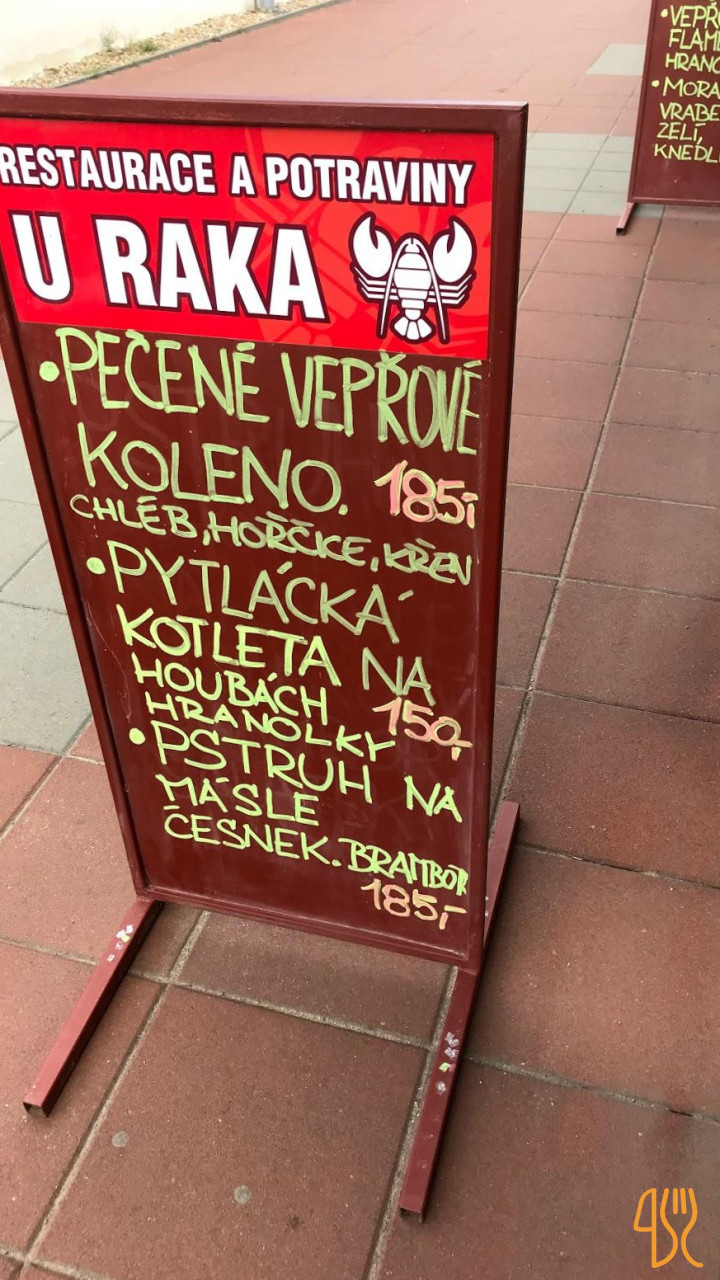 RESTAURACE A POTRAVINY
U RAKA
•PEČENÉ VEPŘOVÉ
KOLENO. 185,-
CHLÉB, HOŘČICE, KŘEN
•PYTLÁCKÁ
KOTLETA NA
HOUBÁCH
HRANOLKY 150,-
•PSTRUH NA
MÁSLE
ČESNEK. BRAMBOR
185,-
•VEPŘO
FLAM
HRANO
•MORA
VRABE
ZELÍ,
KNEDL